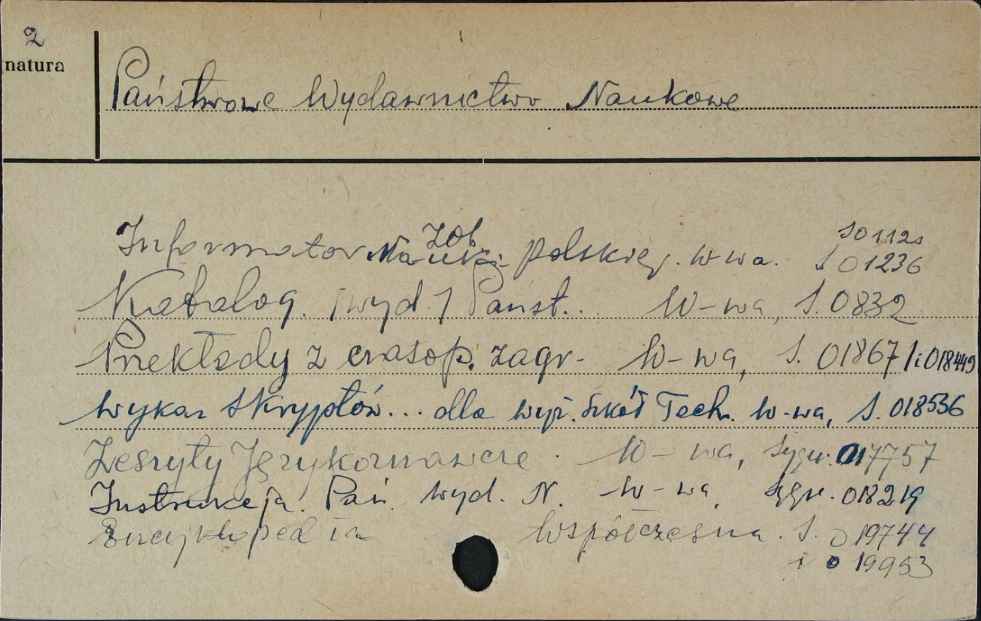 2
natura
Państwowe Wydawnictwo Naukowe
zob. S 01120
Informator Nauki Polskiej. W-wa. S 01236
Katalog. [wyd.] Państ.. W-wa, S. 0832
Przekłady z czasop. zagr. W-wa, S. 01867 i 018449
Wykaz skryptów... dla wyż. Szkół Tech. W-wa, S. 018536
Zeszyty Językoznawcze. W-wa, sygn. 017757
Instrukcja. Pań. Wyd. N. W-wa, sygn. 018219
Encyklopedia Współczesna. S. 019744
i 019953